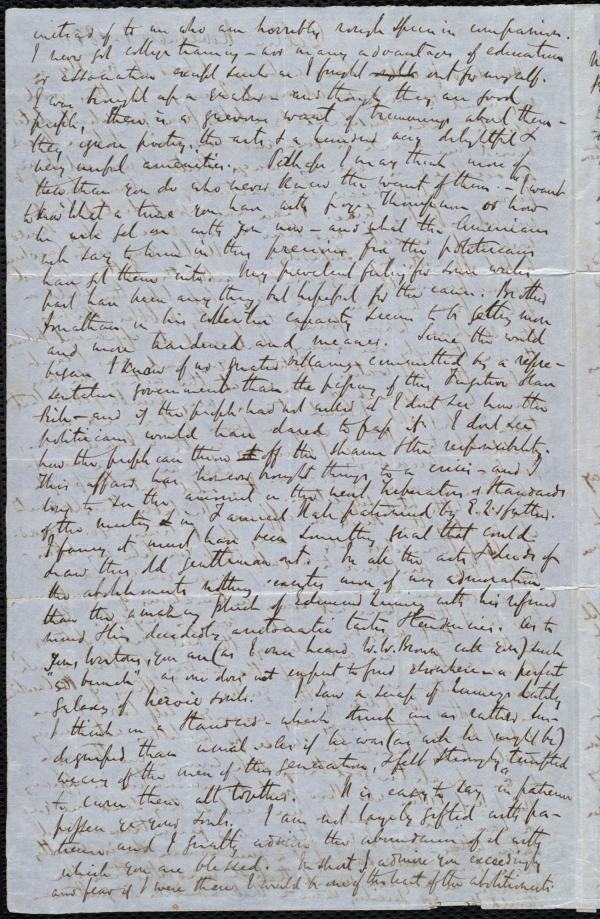 instead of to me who am horribly rough specimen in comparison.
I never got college training – nor many advantages of education
or association except such as I fought out for myself.
I was brought up a Quaker – and though they are good
people, there is a grievous want of trimmings about them –
they ignore poetry, the arts, & a hundred very delightful &
very useful amenities. Perhaps I may think more of
them than you do who never knew the want of them. – I want
to know what a time you have with George Thompson or how
he will get on with you now – and what the Americans
will say to him in this precious fix the politicians
have got them into. My prevalent feeling for some weeks
past have been anything but hopeful for the cause. Brother
Jonathan in his collective capacity seems to be getting more
and more hardened and meaner. Since the world
began I know of no greater villainy committed by a repre-
sentative government than the passing of this Fugitive Slave
Bill – and if the people had not willed it I dont see how the
politicians would have dared to pass it. I dont see
how the people can throw off the shame & the responsibility.
This affair has however brought things to a crisis – and I
long to see the arrival in the next Liberators & Standards
of the meeting in Faneuil Hall
I fancy it must have been something great that could
draw this old gentleman out. In all the acts & deeds of
the abolitionists nothing excites more of my admiration
than the amazing pluck of Edmund Quincy with his refined
mind & his decidedly aristocratic tastes & tendencies. As to
you, Westons, you are (as I once heard W. W. Brown call em) such
"a bunch" as one does not expect to find elsewhere – a perfect
galaxy of heroic souls. I saw a scrap of Quincy's lately
I think in a Standard – which struck me as rather less
dignified than usual. As if he was (as well he might be)
weary of the men of this generation, & felt strongly tempted
to curse them all together. It is easy to say "in patience
possess ye your souls. I am not largely gifted with pa-
tience and I greatly admire the abundance of it with
which you are blessed. In short I admire you exceedingly
and fear if I were there I would be one of the least of the abolitionists